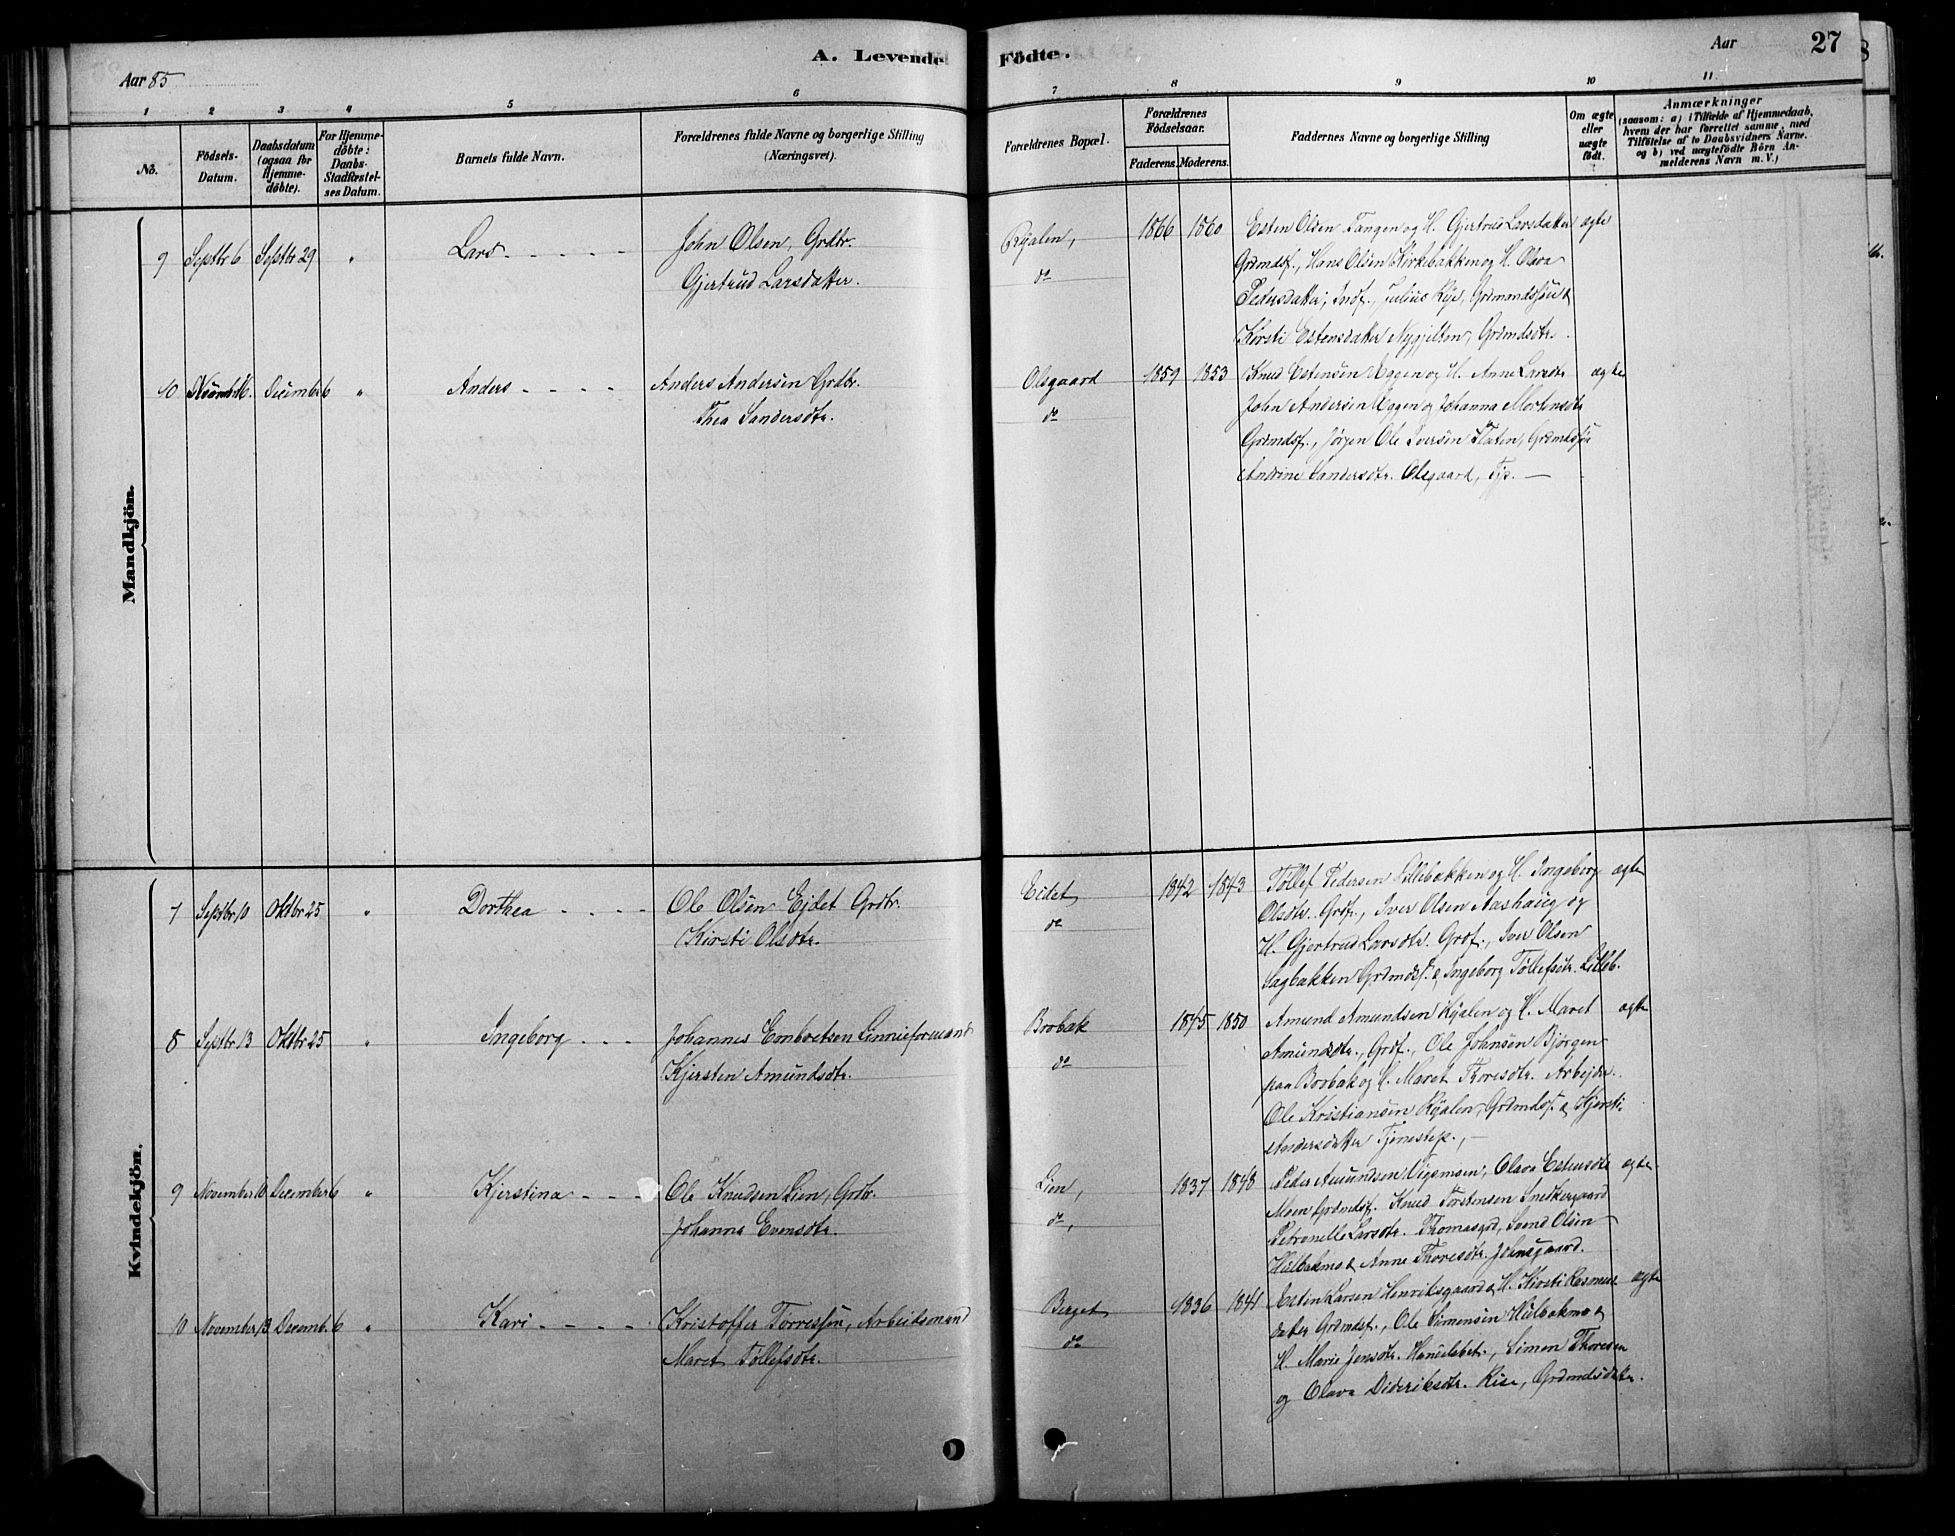 A. Levende Födte.
Aar 85
Aar 27
1 2 3 4 5 6 7 8 9 10 11
No.
Födsels-Datum.
Daabsdatum (ogsaa for Hjemme-döbte).
For Hjemme-döbte: Daabs-Stadfæstel-ses Datum.
Barnets fulde Navn.
Forældrenes fulde Navne og borgerlige Stilling
(Næringsvei).
Forældrenes Bopæl.
Forældrenes Födselsaar.
Faderens. Moderens.
Faddernes Navne og borgerlige Stilling
Om ægte eller uægte födt.
Anmærkninger
(saasom: a) i Tilfælde af Hjemmedaab,
hvem der har forrettet samme, med
Tilföielse af to Daabsvidners Navne.
og b) ved uægtefödte Börn An-
melderens Navn m. V.)
Mandkjön.
9 Septbr 6 Septbr 29 " Lars - - - - - John Olsen, Grdbr.
Gjertrud Larsdatter.
Ryalen,
do
1866 1860
Esten Olsen Tangen og H. Gjertrud Larsdatter ægte
Grdmdsf., Hans Olsen Kirkebakken og H. Olava
Pedersdatter, Inds., Julius Rise, Grdmandssøn &
Kersti Estensdatter Nygjelten, Grdmdsdtr.
10 16. December 6 " Anders - - - - Anders Andersen Grdbr.
Thea Sandersdtr.
Olsgaard
do
1859 1853
Knud Estensen Eggen og H. Anne Larsdtr ægte
John Andersen Eggen og Johanna Mortensdtr
Grdmdsf., Jørgen Ole Iversen Fløten, Grdmdsøn
Andrine Sandersdtr. Olsgaard, Tjp. —
Kvindekjön.
7 Septbr. 10 Oktbr 25 " Dorthea - - - - Ole Olsen Eidet Grdbr.
Kirsti Olsdtr.
Eidet
do
1842 1843
Tollef Pedersen Lillebakken og H. Ingeborg ægte
Olsdtr. Grdf., Iver Olsen Aashaug og
H. Gjertrud Larsdtr. Grdf., Iver Olsen
Sagbakken Grdmdsf. & Ingeborg Tollefsdtr. Lilleb.
8 Septbr. 13 Oktbr 25 " Ingeborg - - - Johannes Embretsen Linnieformand
Kjersten Amundsdtr.
Brobak
do
1845 1850
Amund Amundsen Ryalen og H. Maret ægte
Amundsdtr., Grdf., Ole Johnsen Bjørgen
paa Brobak og H. Maret Thoresdtr. Arbejdr.
Ole Kristiansen Ryalen, Grdmdsf. & Kjersti
Andersdatter Tjenestep., —
9 November 10 December 6 " Kjerstina - - - Ole Knudsen Lien, Grdbr.
Johanna Evensdtr.
Lien,
do,
1837 1848
Peder Amundsen Vigsmoen, Olava Estensdtr ægte
Moen Grdmdsf. Knud Torstensen Snedkergaard
Petronelle Larsdtr. Thomasgrd, Svend Olsen
Hulbakmo & Anne Thoresdtr. Johnsgaard.
10 November 13 Decemb. 6 " Kari - - - - Kristoffer Torressen, Arbeidsmand
Maret Tollefsdtr.
Berget
do
1836 1841
Esten Larsen Henriksgaard & H. Kirsti Rasmus- ægte
datter Grdmdsf., Ole Simensen Hulbakmo &
H. Marie Jensdtr. , Simen Thoresen
og Olava Dideriksdtr. Rise, Grdmdsdatr.